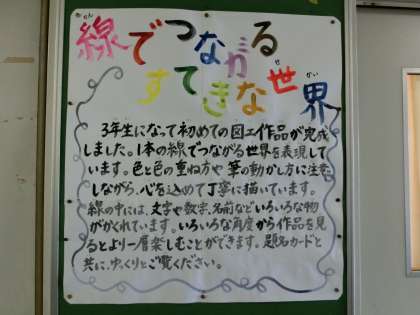 線でつながる
すてきな世界
3年生になって初めての図工作品が完成
しました。1本の線でつながる世界を表現して
います。色と色の重ね方や筆の動かし方に注意
しながら、心を込めて丁寧に描いています。
線の中には、文字や数字、名前などいろいろな物
がかくれています。いろいろな角度から作品を見
るとより一層楽しむことができます。題名カードと
共に、ゆっくりとご覧ください。